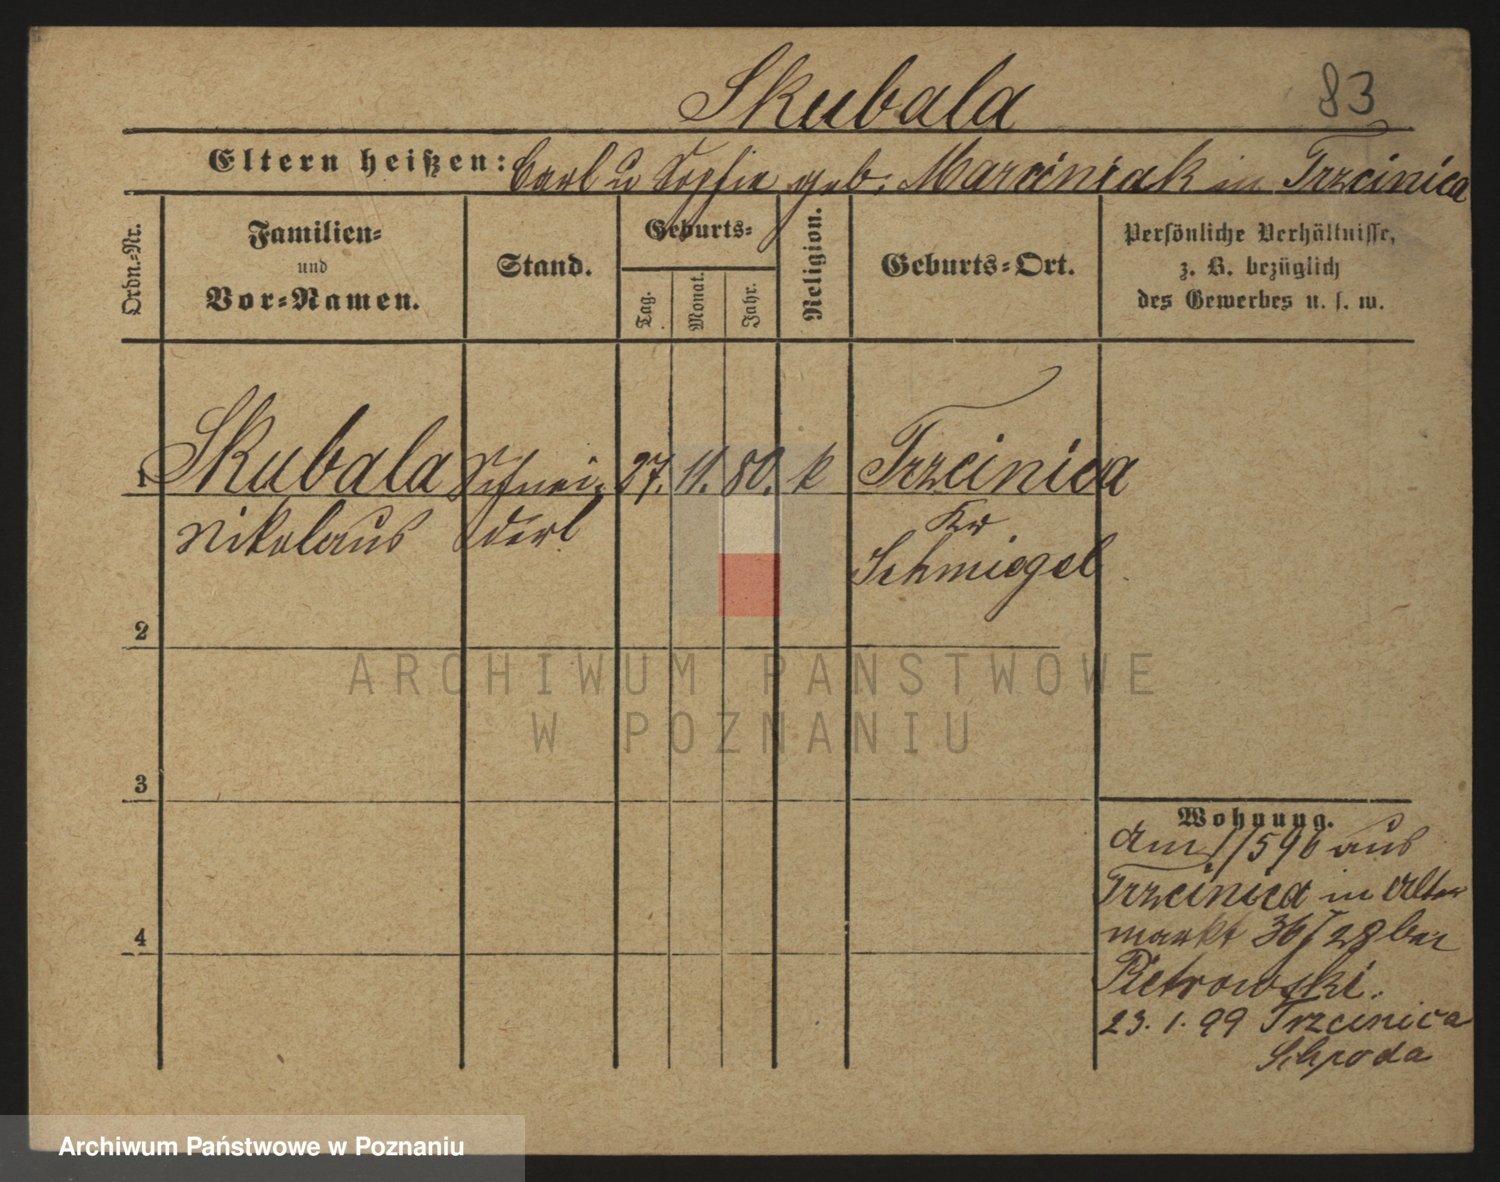 Skubala
83
Eltern heißen: Carl u Sophia geb. Marciniak in Trzcinica
Ordn.-Nr.
Familien-
und
Vor-Namen.
Stand.
Geburts-
Tag.
Monat.
Jahr.
Religion.
Geburts-Ort.
Persönliche Verhältnisse,
z. B. bezüglich
des Gewerbes u. s. w.
1 Skubala Schnei- 27. 11. 80. k Trzcinica
Nikolaus derl Kr
Schmiegel
2
3
4
Wohnung.
am 1/596 aus
Trzcinica in Alter
markt 36/28 bei
Pietrowski.
23. 1. 99 Trzcinica
Schroda
ARCHIWUM PAŃSTWOWE
W POZNANIU
Archiwum Państwowe w Poznaniu